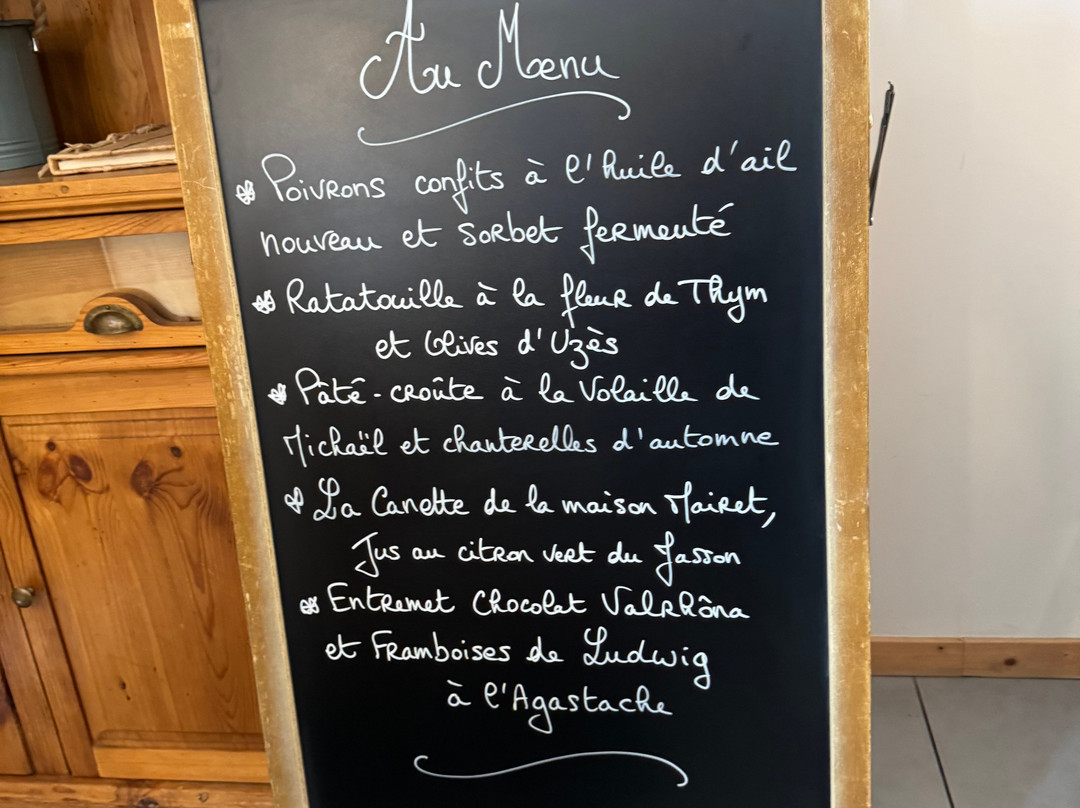 Au Menu
Poivrons confits à l'huile d'ail
nouveau et sorbet fermenté
Ratatouille à la fleur de Thym
et Olives d'Uzès
Pâté-croûte à la Volaille de
Michaël et chanterelles d'automne
La Canette de la maison Mairet,
Jus au citron vert du Jasson
Entremet Chocolat Valrhôna
et Framboises de Ludwig
à l'Agastache